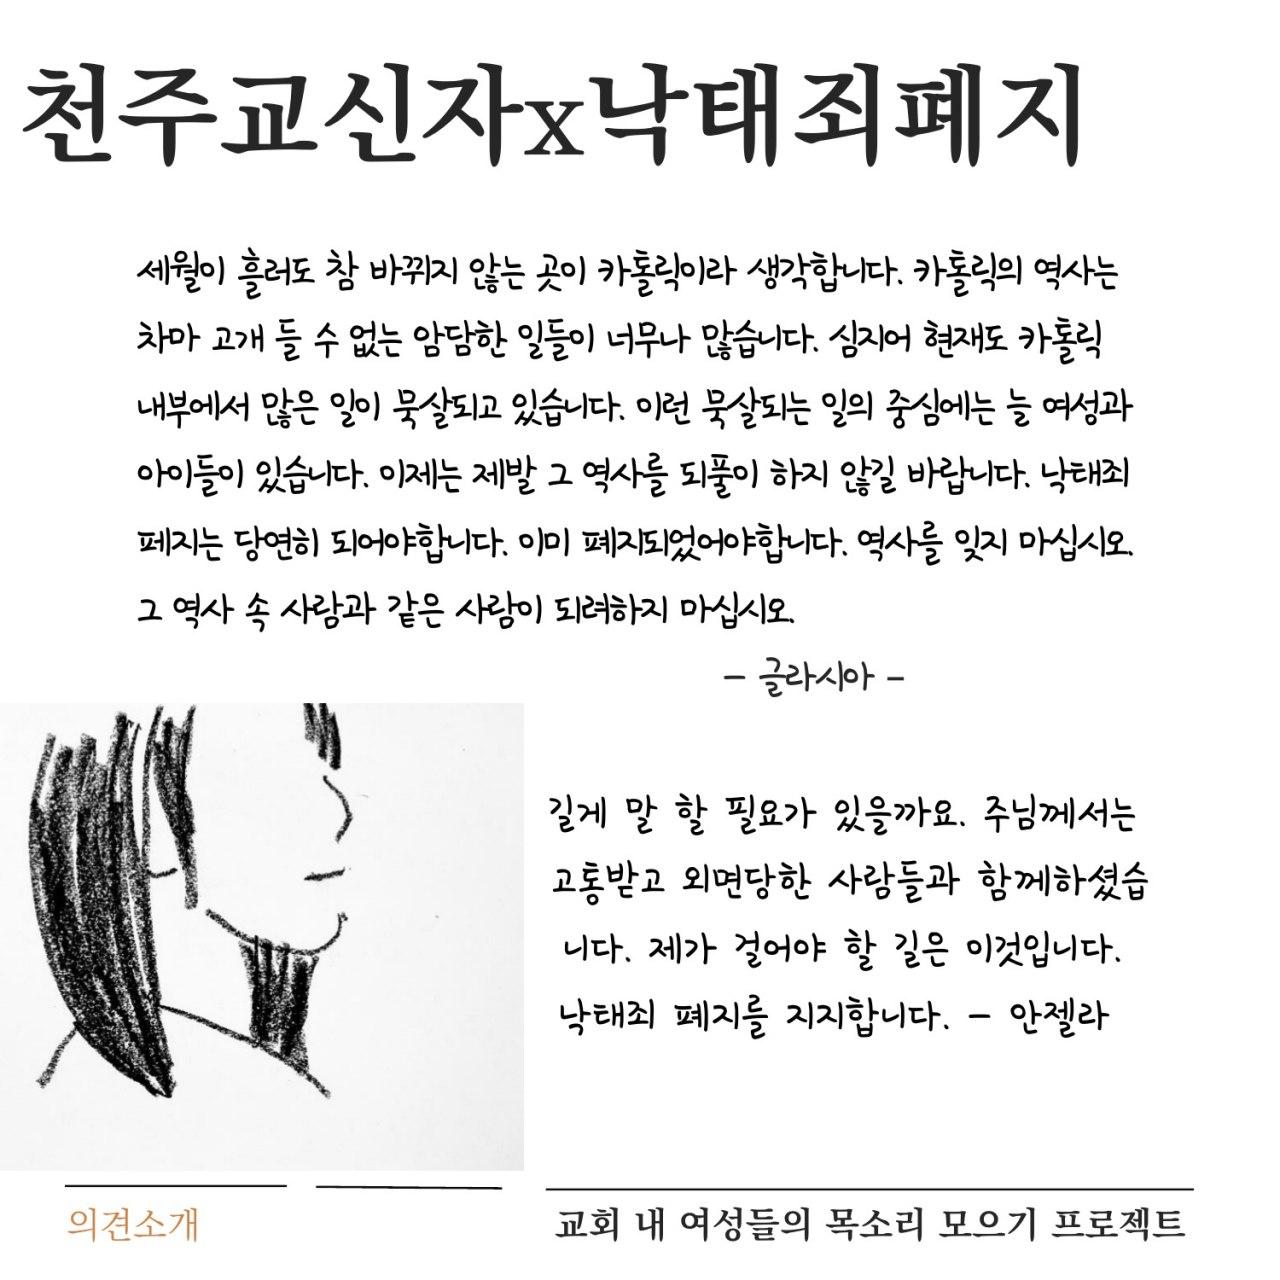 천주교신자x낙태죄폐지
세월이 흘러도 참 바뀌지 않는 곳이 카톨릭이라 생각합니다. 카톨릭의 역사는
차마 고개 들 수 없는 암담한 일들이 너무나 많습니다. 심지어 현재도 카톨릭
내부에서 많은 일이 묵살되고 있습니다. 이런 묵살되는 일의 중심에는 늘 여성과
아이들이 있습니다. 이제는 제발 그 역사를 되풀이 하지 않길 바랍니다. 낙태죄
페지는 당연히 되어야합니다. 이미 폐지되었어야합니다. 역사를 잊지 마십시오.
그 역사 속 사람과 같은 사람이 되려하지 마십시오.
- 글라시아 -
길게 말 할 필요가 있을까요. 주님께서는
고통받고 외면당한 사람들과 함께하셨습
니다. 제가 걸어야 할 길은 이것입니다.
낙태죄 폐지를 지지합니다. - 안젤라
의견소개
교회 내 여성들의 목소리 모으기 프로젝트